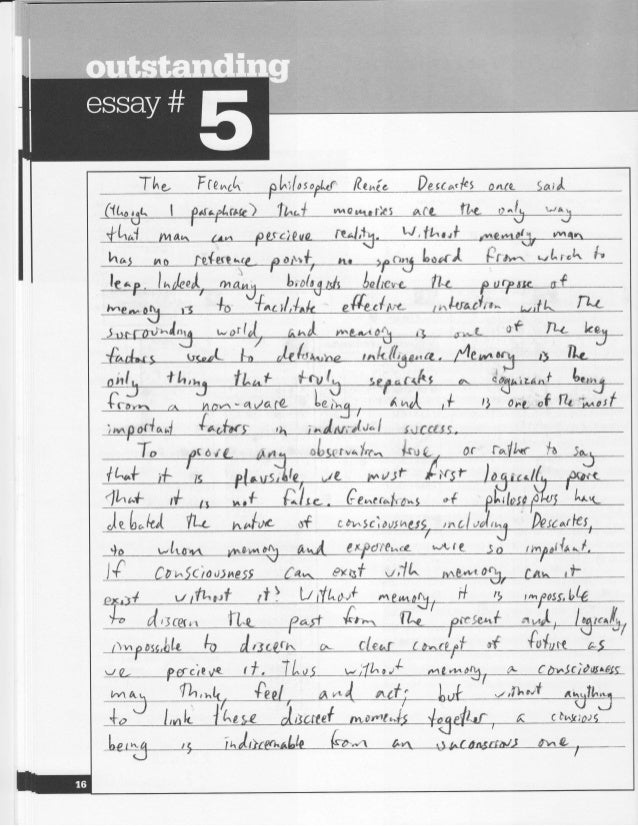 outstanding
essay # 5
The French philosopher Renée Descartes once said
(though I paraphrase) that memories are the only way
that man can percieve reality. Without memory, man
has no reference point, no spring board from which to
leap. Indeed, many biologists believe the purpose of
memory is to facilitate effective interaction with the
surrounding world, and memory is one of the key
factors used to determine intelligence. Memory is the
only thing that truly separates a cognizant being
from a non-aware being, and it is one of the most
important factors in individual success.
To prove any observation true, or rather to say
that it is plausible, we must first logically prove
that it is not false. Generations of philosophers have
debated the nature of consciousness, including Descartes,
to whom memory and experience were so important.
If consciousness can exist with memory, can it
exist without it? Without memory, it is impossible
to discern the past from the present and, logically,
impossible to discern a clear concept of future as
we percieve it. Thus without memory, a consciousness
may think, feel, and act; but without anything
to link these discreet moments together, a conscious
being is indiscernable from an unconscious one,
16